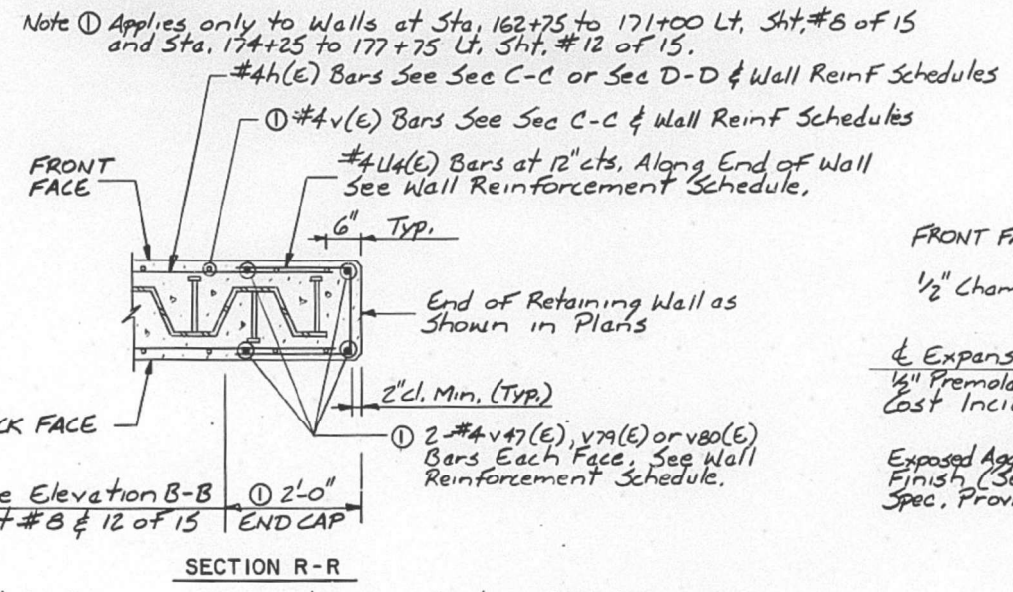 Note ① Applies only to Walls at Sta. 162+75 to 171+00 Lt. Sht.#8 of 15
and Sta. 174+25 to 177+75 Lt. Sht. #12 of 15.
#4h(E) Bars See Sec C-C or Sec D-D & Wall Reinf Schedules
① #4v(E) Bars See Sec C-C & Wall Reinf Schedules
#4U4(E) Bars at 12" cts. Along End of Wall
See Wall Reinforcement Schedule.
FRONT
FACE
6" Typ.
End of Retaining Wall as
Shown in Plans
2"cl. Min. (Typ.)
CK FACE
① 2-#4 v47(E), v79(E) or v80(E)
Bars Each Face. See Wall
Reinforcement Schedule.
e Elevation B-B
t #8 & 12 of 15
① 2'-0"
END CAP
SECTION R-R
FRONT FA
½" Cham
℄ Expans
½" Premold
Cost Inci
Exposed Agg
Finish (Se
Spec. Prov